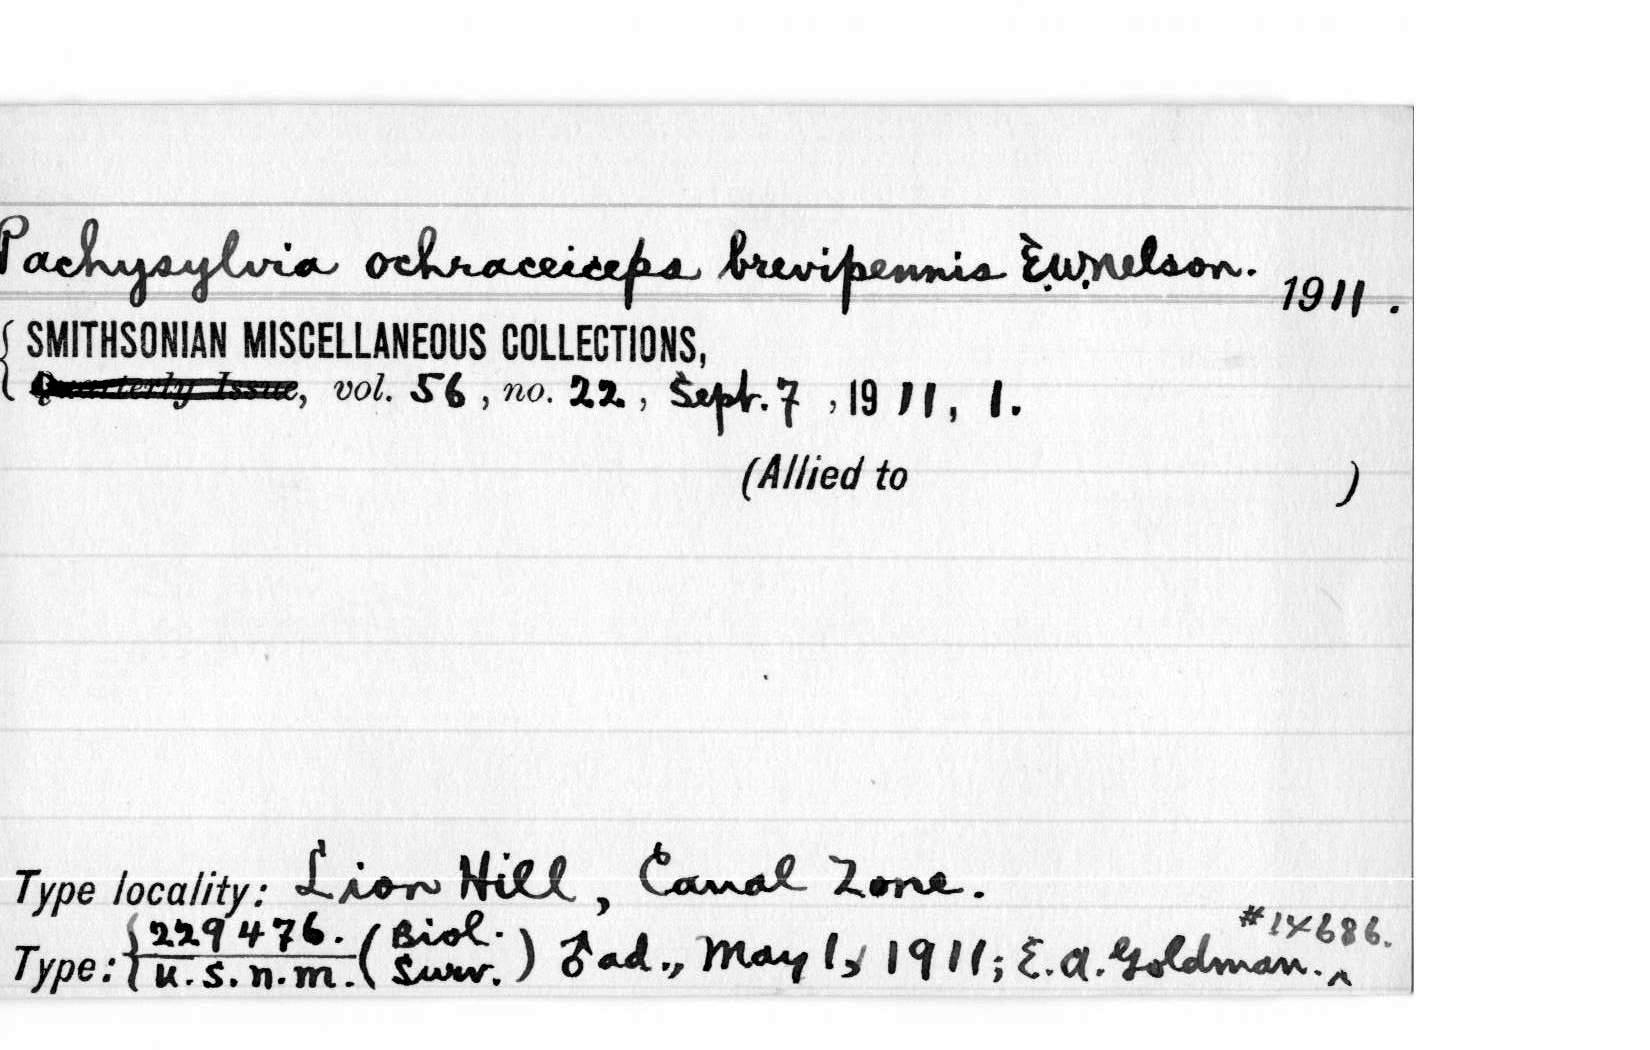 Pachysylvia ochraceiceps brevipennis E.W. Nelson. 1911.
SMITHSONIAN MISCELLANEOUS COLLECTIONS,
Quarterly Issue, vol. 56, no. 22, Sept. 7, 1911, 1.
(Allied to )
Type locality: Lion Hill, Canal Zone.
#14686.
229476. (Biol.
Type: U.S.N.M. Surv.) ♂ ad., May 1, 1911; E.A. Goldman. ^